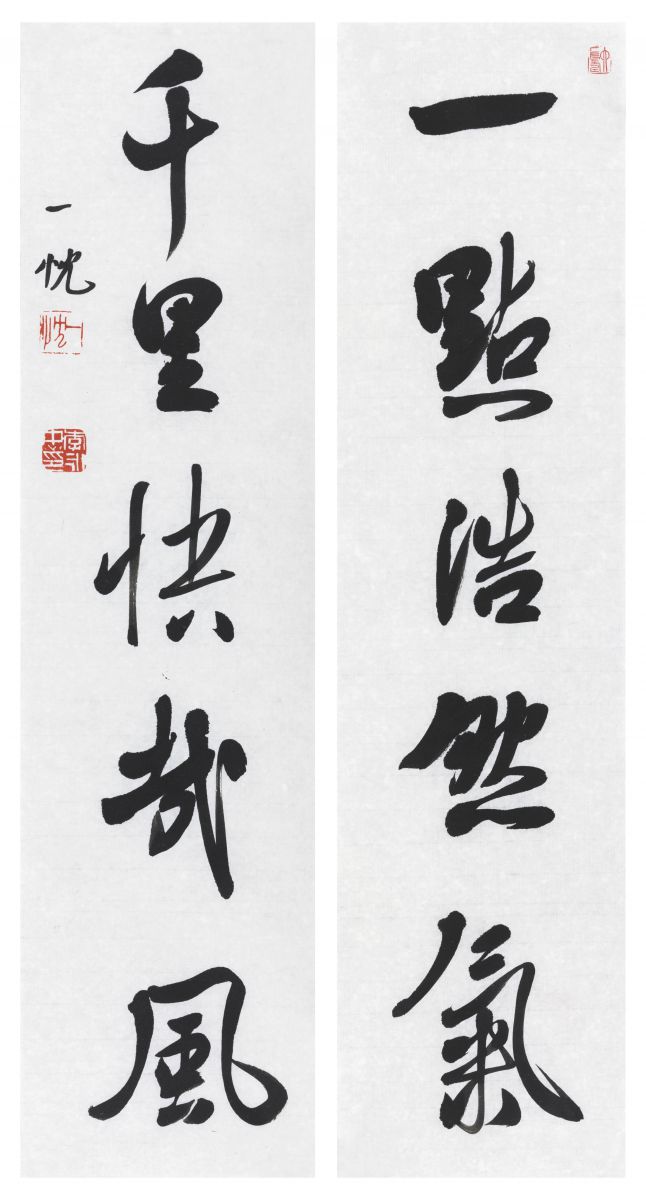 一點浩然氣
千里快哉風
一忱